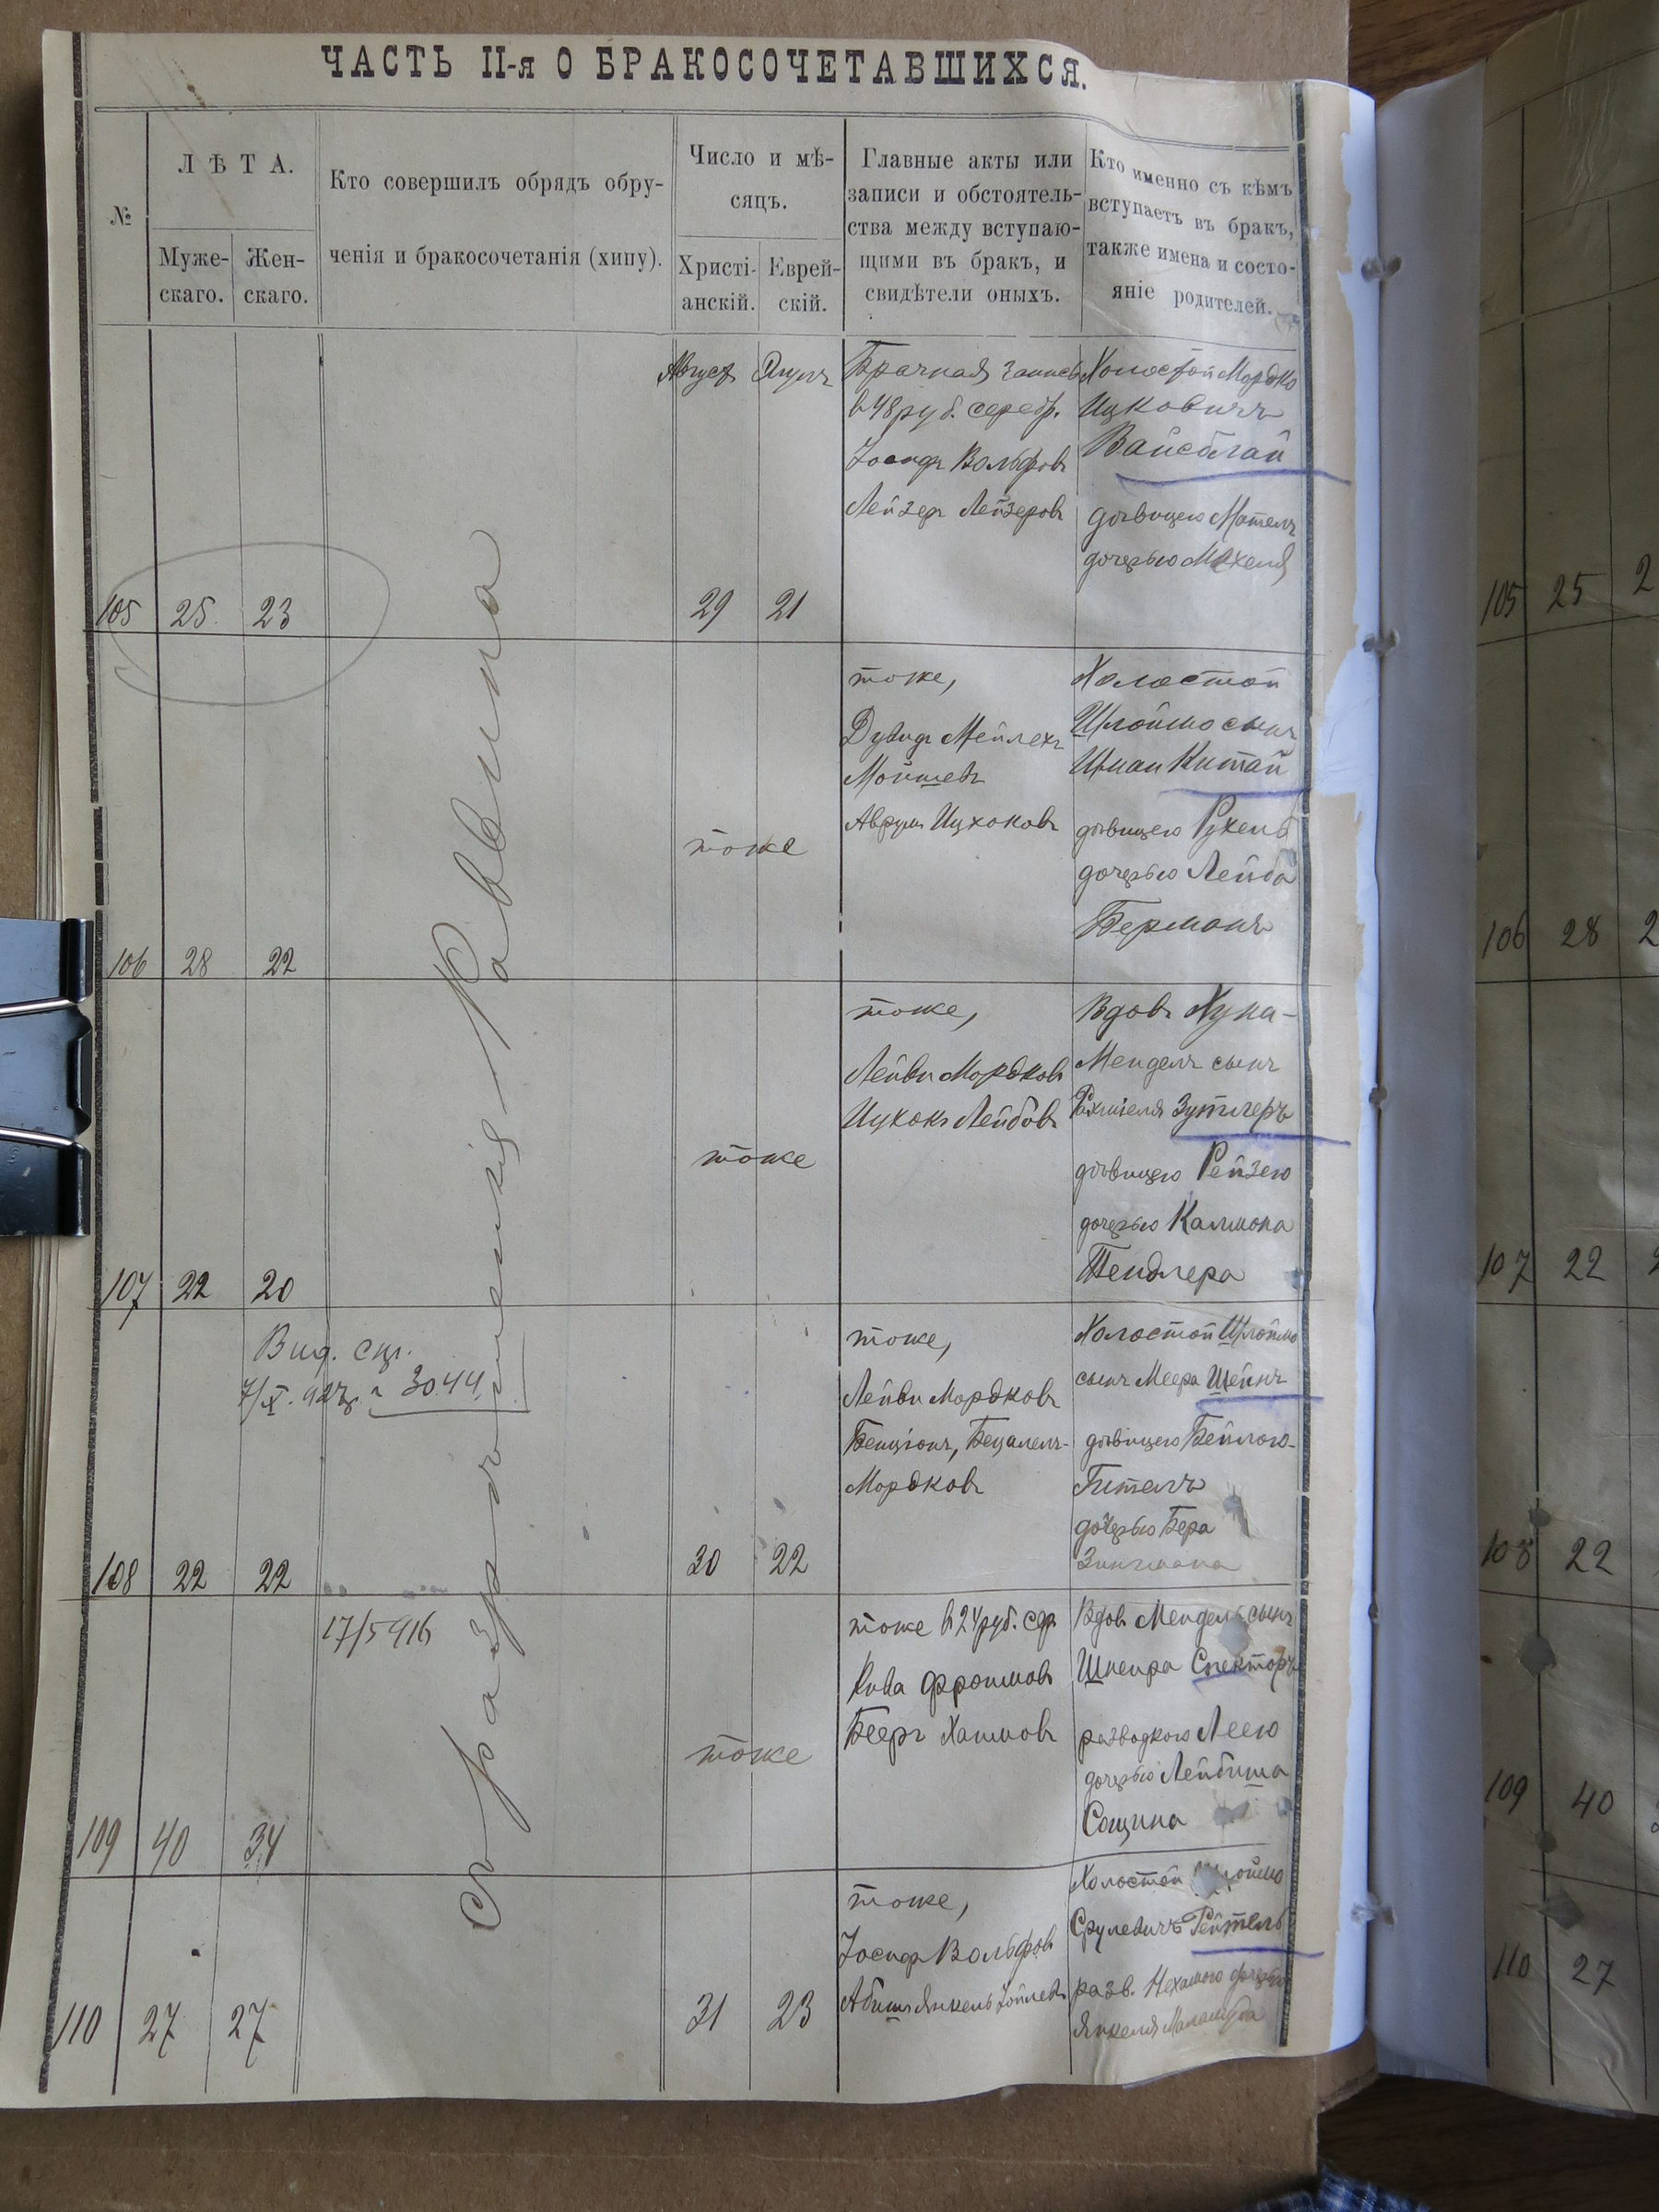 ЧАСТЬ II-я О БРАКОСОЧЕТАВШИХСЯ.
№
ЛѢТА.
Муже-
скаго.
Жен-
скаго.
Кто совершилъ обрядъ обру-
ченія и бракосочетанія (хипу).
Число и мѣ-
сяцъ.
Христі-
анскій.
Еврей-
скій.
Главные акты или
записи и обстоятель-
ства между вступаю-
щими въ бракъ, и
свидѣтели оныхъ.
Кто именно съ кѣмъ
вступаетъ въ бракъ,
также имена и состо-
яніе родителей.
Август
Брачная запись
в 48 руб. серебр.
Іосифъ Вольфовъ
Лейзеръ Лейзеровъ
Холостой Мордко
Ицковичъ
Вайсблай
дѣвицею Мателъ
дочерью
105 25 23 29 21
Раввина
тоже,
Мейлехъ
Мойшевъ
Аврумъ Ицхоковъ
Холостой
Шлоймо сынъ
Китай
дѣвицею Рухель
дочерью Лейба
Берманъ
тоже
106 28 22
тоже,
Лейви Мордковъ
Ицхокъ Лейбовъ
Вдовъ Хуна-
Мендель сынъ
Зутлеръ
дѣвицею Рейзею
дочерью Калмона
Тендлера
тоже
107 22 20
Вид.
3044
тоже,
Лейви Мордковъ
Бенціонъ, Бецалель-
Мордковъ
Холостой Шлоймо
сынъ Меера Шейнъ
дѣвицею Бейлою-
Гителъ
дочерью Бера
Зингмана
108 22 22 30 22
17/5 916
тоже в 24 руб. сер.
Кива Фроимовъ
Бееръ Хаимовъ
Вдовъ Мендель сынъ
Шнеира Спекторъ
разводкою Леею
дочерью Лейбиша
Сощина
тоже
109 40 34
тоже,
Іосифъ Вольфовъ
Абишъ Янкель
Холостой Шлоймо
Срулевичъ Рейтель
разв. Нехамою дочерью
Янкеля
110 27 27 31 23
105 25 2
106 28 2
107 22
108 22
109 40
110 27